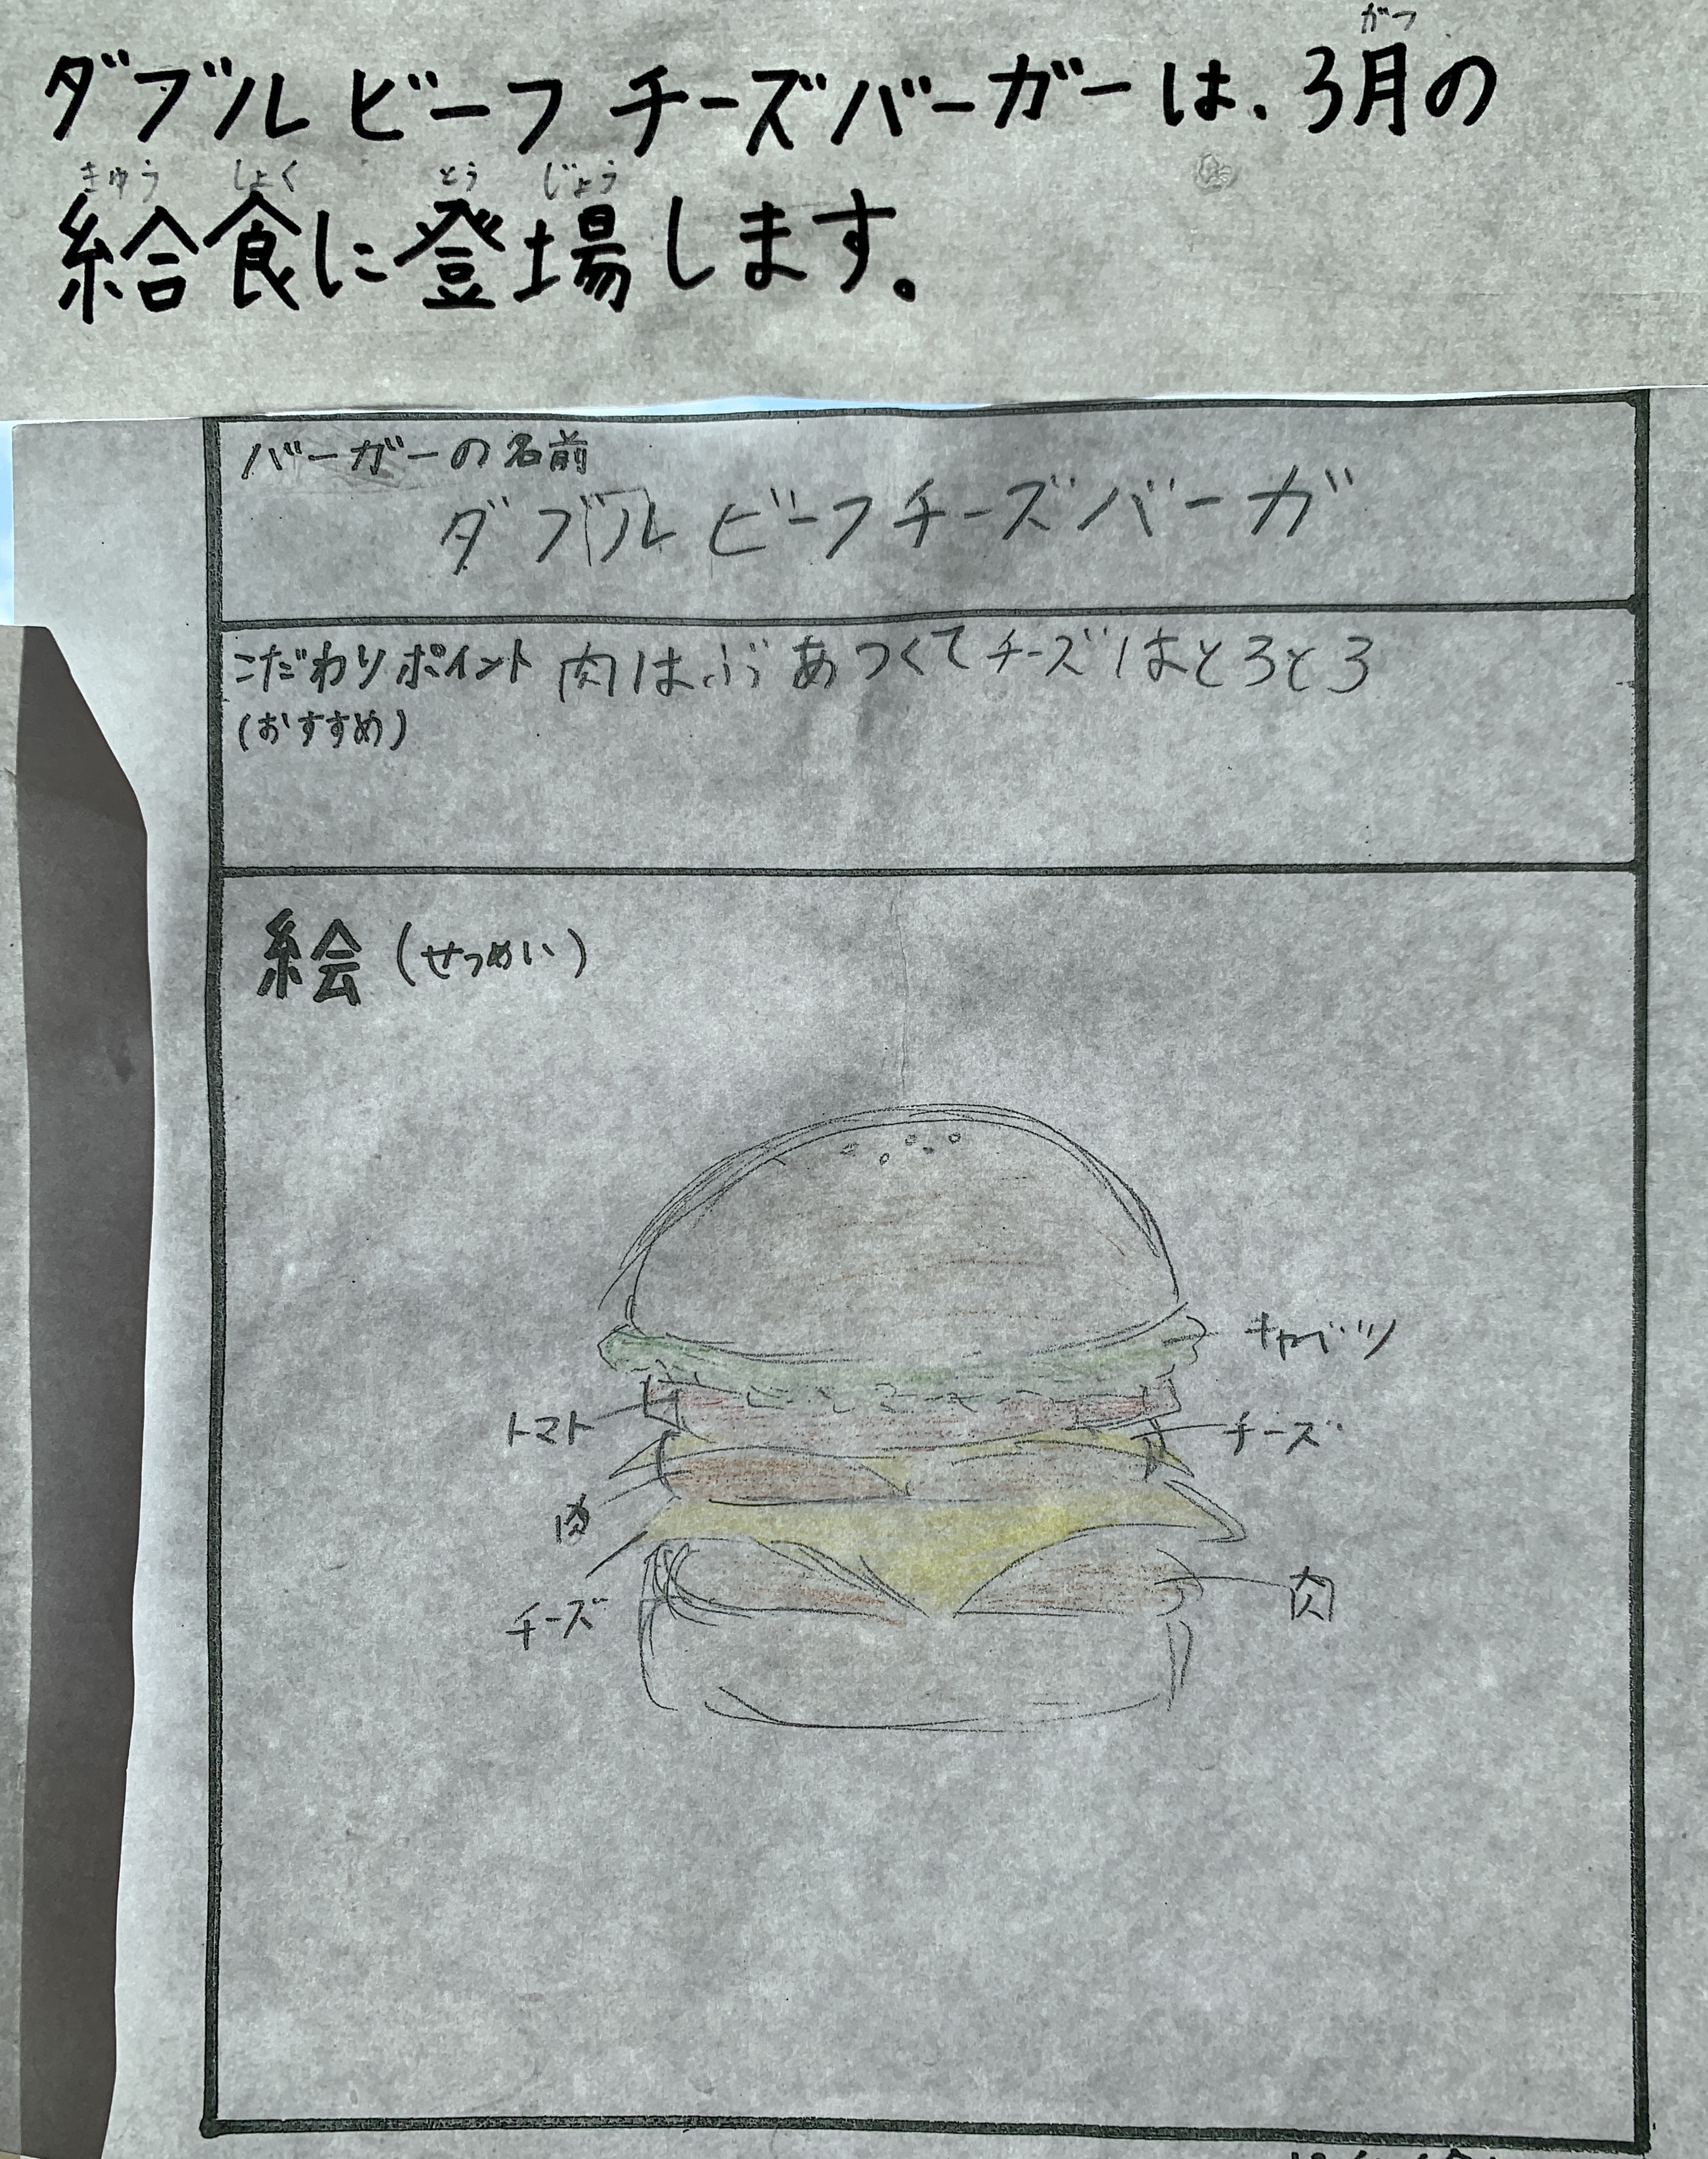 がつ
ダブルビーフチーズバーガーは、3月の
きゅう しょく とう じょう
給食に登場します。
バーガーの名前
ダブルビーフチーズバーガ
こだわりポイント 肉はぶあつくてチーズはとろとろ
(おすすめ)
絵(せつめい)
キャベツ
トマト
チーズ
肉
チーズ
肉